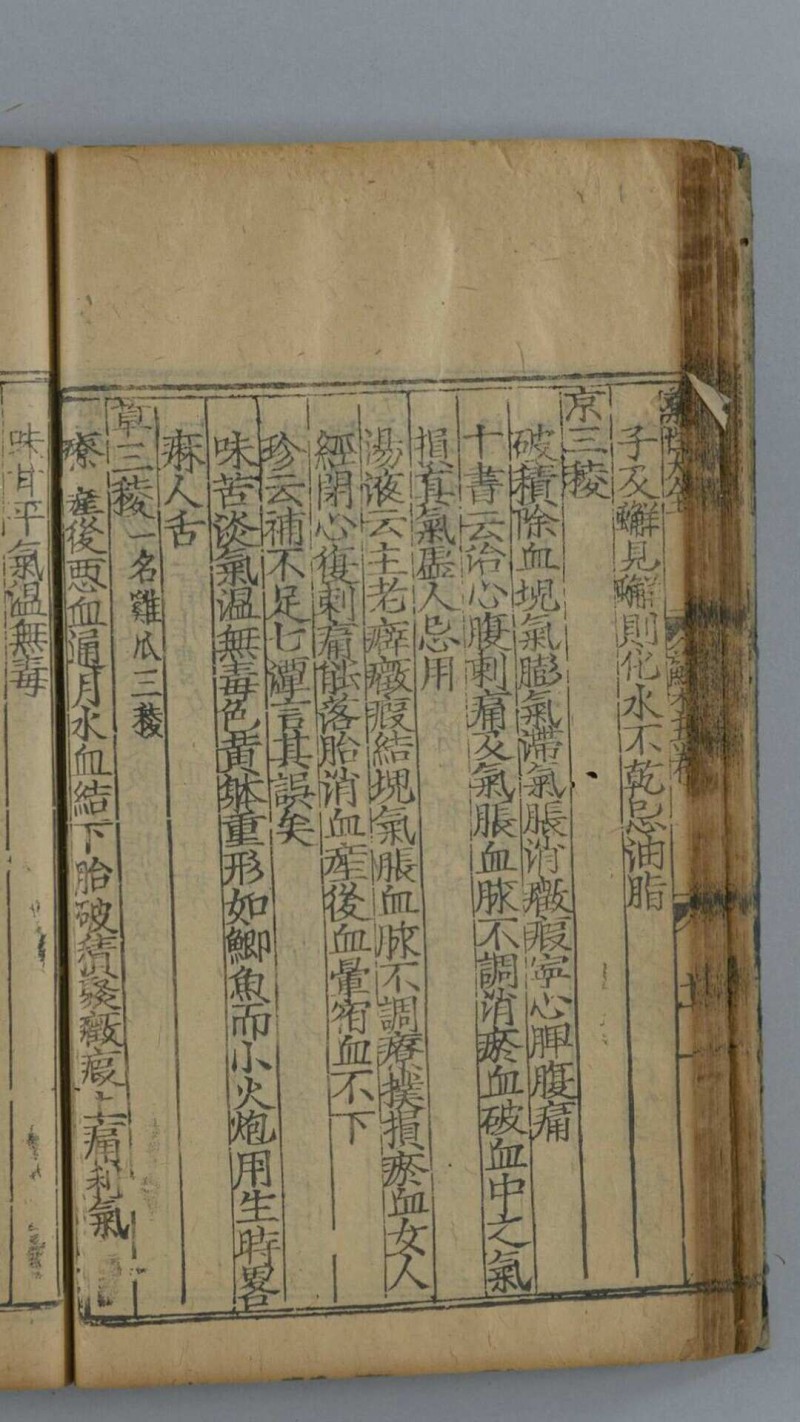 子及蠏見蠏則化水不乾忌油脂
京三稜
破積除血塊氣膨氣滯氣脹消癥瘕寧心脾腹痛
十書云治心腹刺痛及氣脹血脉不調消瘀血破血中之氣
損真氣虛人忌用
湯液云主老癖癥瘕結塊氣脹血脉不調療撲損瘀血女人
經閉心復刺痛能落胎消血産後血暈宿血不下
珍云補不足七潭言其誤矣
味苦淡氣温無毒色黃躰重形如鯽魚而小火炮用生時畧
麻人舌
草三稜一名雞爪三稜
療産後惡血通月水血結下胎破積聚癥瘕止痛利氣
味甘平氣温無毒